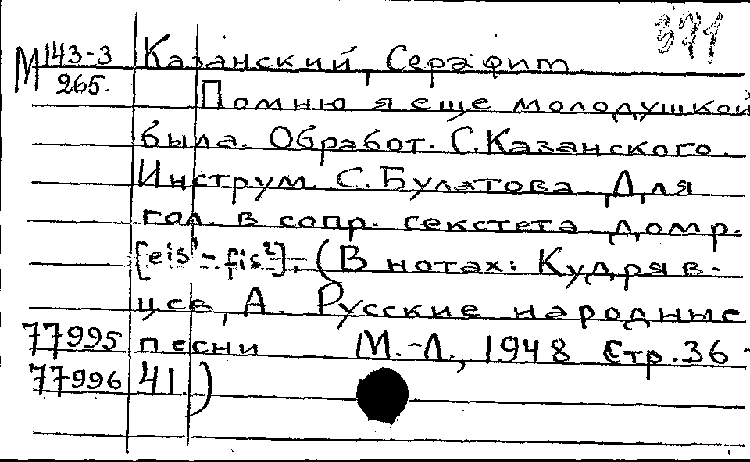 371
М 143-3 Казанский, Серафим
265. Помню я еще молодушкой
была. Обработ. С. Казанского.
Инструм. С. Булатова. Для
гол. в сопр. секстета домр.
[eis¹-fis²]. (В нотах: Кудряв-
цев, А. Русские народные
77995 песни М.-Л., 1948 Стр. 36-
77996 41.)